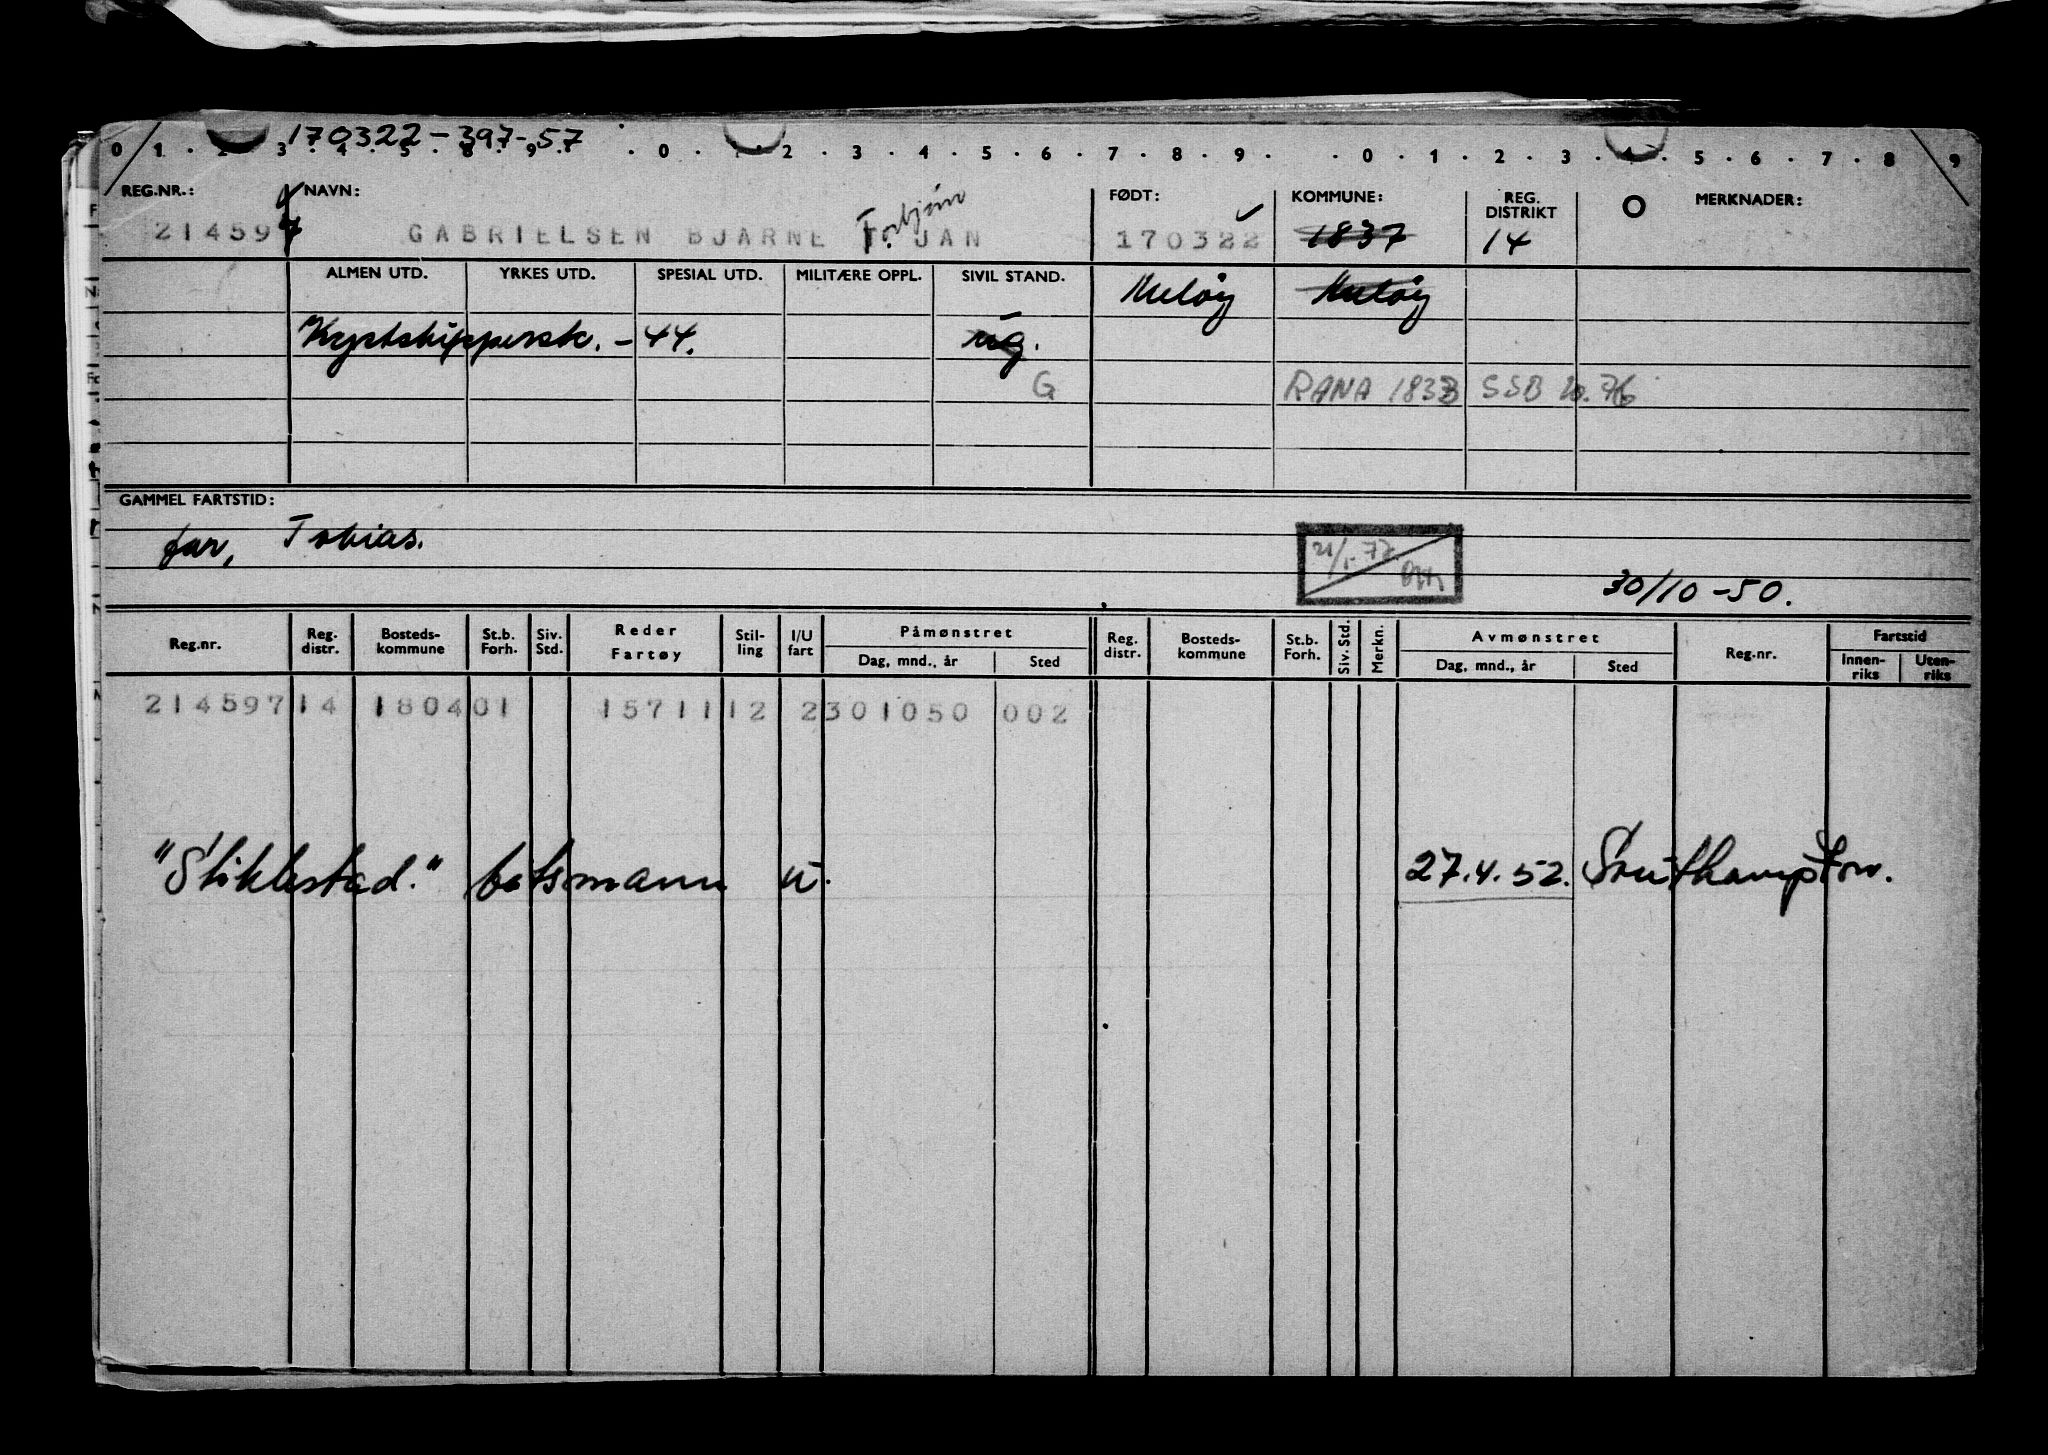 170322-397-57
0 1 . 2 . 3 . 4 . 5 . 8 . 9 . . 0 . 1 . 2 . 3 . 4 . 5 . 6 . 7 . 8 . 9 . . 0 . 1 . 2 . 3 . 4 . 5 . 6 . 7 . 8 9
REG.NR.: NAVN: Torbjörn FØDT: KOMMUNE: REG. DISTRIKT MERKNADER:
214597 GABRIELSEN BJARNE T. JAN 170322 1837 14
ALMEN UTD. YRKES UTD. SPESIAL UTD. MILITÆRE OPPL. SIVIL STAND. Meløy Meløy
Kystskippersk. - 44. ug.
G RANA 1833 SSB 10.76
GAMMEL FARTSTID:
far, Tobias.
30/10-50.
Reg.nr. Reg. distr. Bosteds-kommune St.b. Forh. Siv. Std. Reder Fartøy Stil-ling I/U fart Påmønstret Reg. distr. Bosteds-kommune St.b. Forh. Siv. Std. Merkn. Avmønstret Reg.nr. Fartstid
Dag, mnd., år Sted Dag, mnd., år Sted Innen-riks Uten-riks
214597 14 1804 01 15711 12 2 301050 002
"Stiklestad." båtsmann u. 27.4.52. Southampton.